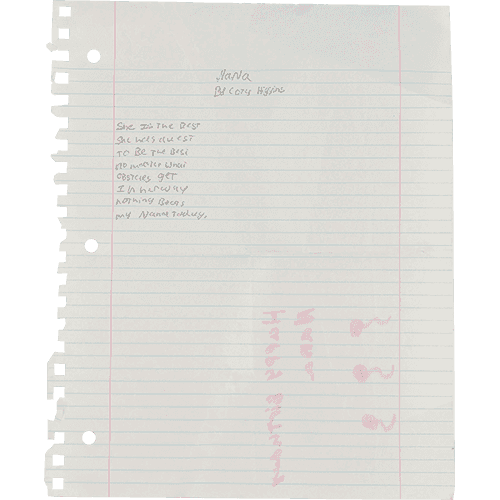 Nana
By Cory Higgins
She Is The Best
She Was quest
To Be The Best
no matter what
obstcles get
In her way
nothing Beats
my Nana Today.
Nana
Happy Birthday